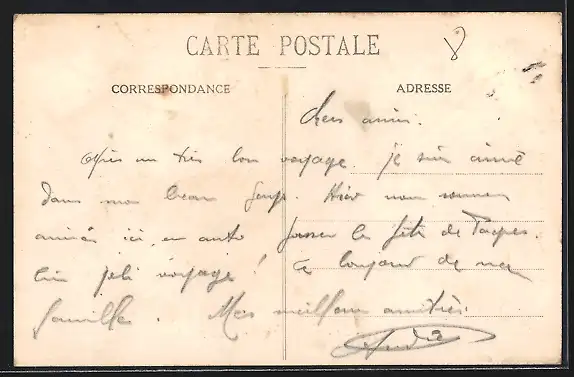 CARTE POSTALE
CORRESPONDANCE
ADRESSE
Chers amis.
Après un très bon voyage. je suis arrivé
dans mon beau Hier nous sommes
arrivés ici, en auto passer la fête de Pâques.
joli voyage ! de ma
famille. Mes meilleures amitiés.
André